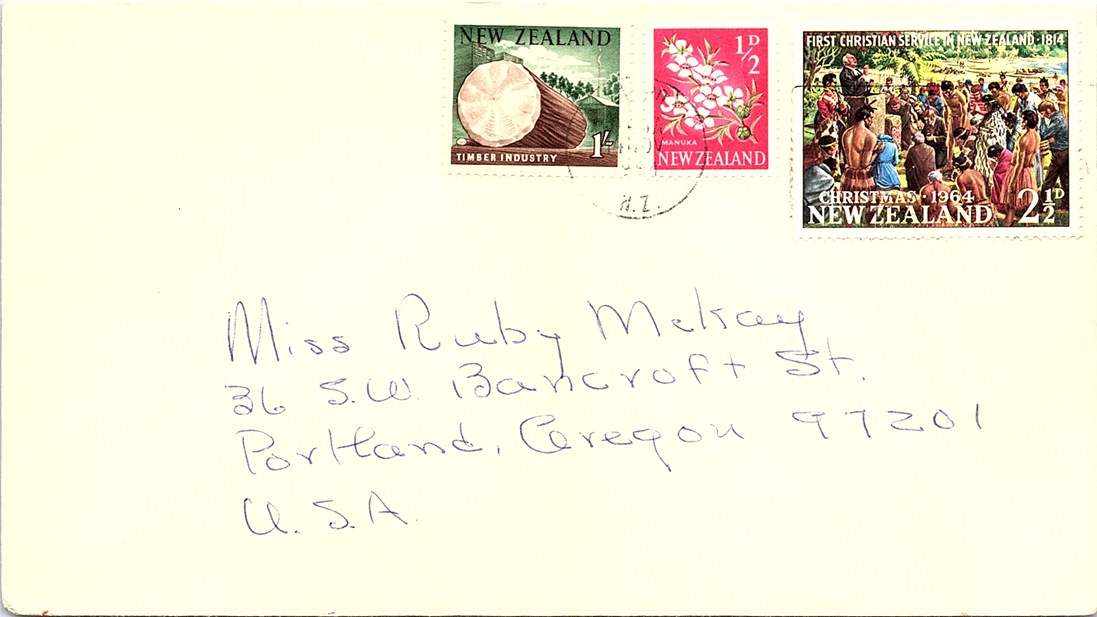 NEW ZEALAND
TIMBER INDUSTRY 1/-
1/2D
MANUKA
NEW ZEALAND
FIRST CHRISTIAN SERVICE IN NEW ZEALAND · 1814
CHRISTMAS · 1964
NEW ZEALAND 2 1/2D
N.Z.
Miss Ruby McKay
36 S.W. Bancroft St.
Portland, Oregon 97201
U.S.A.